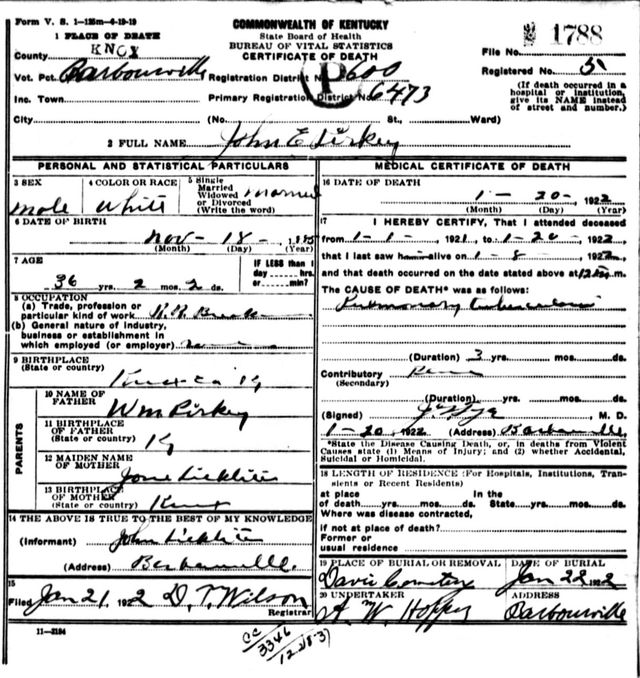 Form V. S. 1-125m-6-19-19
1 PLACE OF DEATH
County KNOX
Vot. Pct. Barbourville
Inc. Town
City
COMMONWEALTH OF KENTUCKY
State Board of Health
BUREAU OF VITAL STATISTICS
CERTIFICATE OF DEATH
Registration District No. 600
Primary Registration District No. 6473
(No. St., Ward)
P
File No. 1788
Registered No. 5
(If death occurred in a
hospital or institution,
give its NAME instead
of street and number.)
2 FULL NAME John E Pirkey
PERSONAL AND STATISTICAL PARTICULARS
3 SEX
male
4 COLOR OR RACE
White
5 Single
Married
Widowed
or Divorced
(Write the word)
married
6 DATE OF BIRTH
Nov - 18 - 1885
(Month) (Day) (Year)
7 AGE
36 yrs. 2 mos. 2 ds.
IF LESS than 1
day hrs.
or min.?
8 OCCUPATION
(a) Trade, profession or
particular kind of work R.R.
(b) General nature of industry,
business or establishment in
which employed (or employer)
9 BIRTHPLACE
(State or country)
Ky
PARENTS
10 NAME OF
FATHER
Wm Pirkey
11 BIRTHPLACE
OF FATHER
(State or country) Ky
12 MAIDEN NAME
OF MOTHER
13 BIRTHPLACE
OF MOTHER
(State or country) Knox
14 THE ABOVE IS TRUE TO THE BEST OF MY KNOWLEDGE
(Informant) John
(Address)
15
Filed Jan 21 1922 D. T. Wilson
Registrar
11-3184
MEDICAL CERTIFICATE OF DEATH
16 DATE OF DEATH
1 - 20 - 1922
(Month) (Day) (Year)
17 I HEREBY CERTIFY, That I attended deceased
from 1-1- 1921, to 1-20- 1922
that I last saw h alive on 1-8- 1922
and that death occurred on the date stated above at 12 m.
The CAUSE OF DEATH* was as follows:
Pulmonary tuberculosis
(Duration) 3 yrs. mos. ds.
Contributory
(Secondary)
(Duration) yrs. mos. ds.
(Signed) M. D.
1-20 1922 (Address) Barbourville
*State the Disease Causing Death, or, in deaths from Violent
Causes state (1) Means of Injury; and (2) whether Accidental,
Suicidal or Homicidal.
18 LENGTH OF RESIDENCE (For Hospitals, Institutions, Tran-
sients or Recent Residents)
at place In the
of death yrs. mos. ds. State yrs. mos. ds.
Where was disease contracted,
if not at place of death?
Former or
usual residence
19 PLACE OF BURIAL OR REMOVAL
Davis Cemetery
DATE OF BURIAL
Jan 22 1922
20 UNDERTAKER
A. W. Hopper
ADDRESS
Barbourville
CC
3346